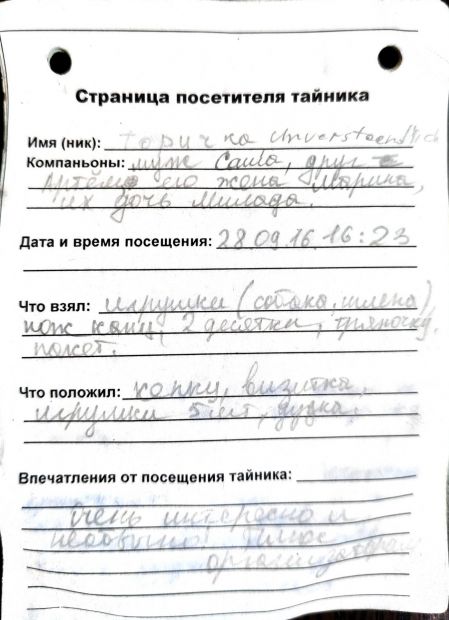 Страница посетителя тайника
Имя (ник): Горичка Unverstaendlich
Компаньоны: муж Саша, друг
Артём, его жена Марина,
их дочь Милада.
Дата и время посещения: 28.09.16 16:23
Что взял: игрушки (собака,
нож, 2 десятки, тряпочку,
пакет.
Что положил: визитка,
игрушки 5 шт, дудка.
Впечатления от посещения тайника:
Очень интересно и
необычно! Плюс
организаторам